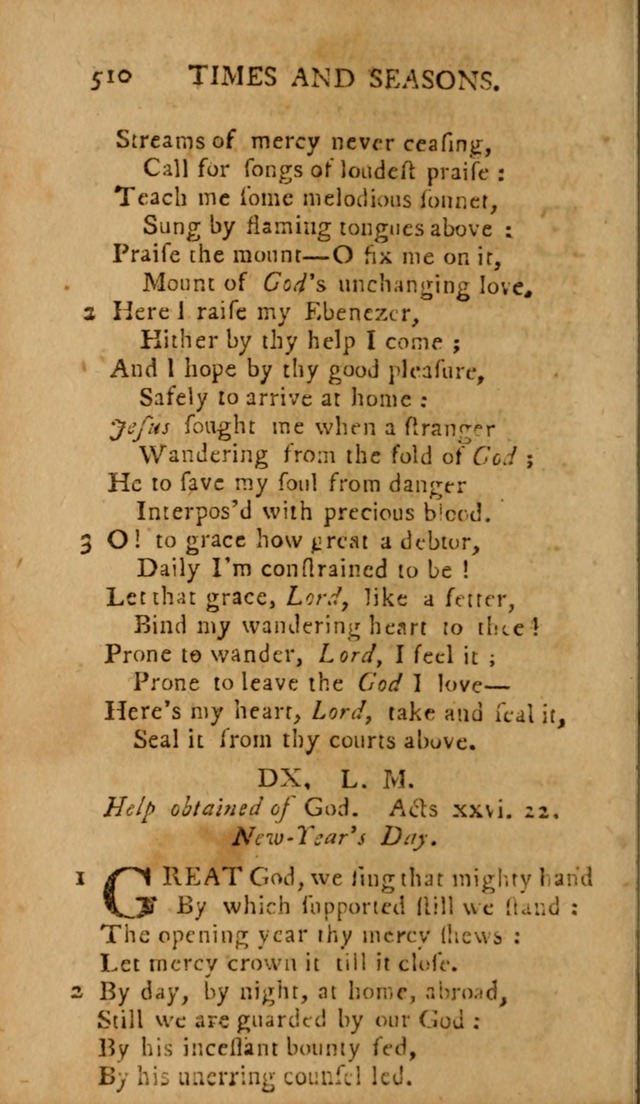 510 TIMES AND SEASONS.
Streams of mercy never ceaſing,
Call for ſongs of loudeſt praiſe :
Teach me ſome melodious ſonnet,
Sung by flaming tongues above :
Praiſe the mount—O fix me on it,
Mount of God's unchanging love.
2 Here I raiſe my Ebenezer,
Hither by thy help I come ;
And I hope by thy good pleaſure,
Safely to arrive at home :
Jeſus ſought me when a ſtranger
Wandering from the fold of God ;
He to ſave my ſoul from danger
Interpos'd with precious blood.
3 O! to grace how great a debtor,
Daily I'm conſtrained to be !
Let that grace, Lord, like a fetter,
Bind my wandering heart to thee !
Prone to wander, Lord, I feel it ;
Prone to leave the God I love—
Here's my heart, Lord, take and ſeal it,
Seal it from thy courts above.
DX. L. M.
Help obtained of God. Acts xxvi. 22.
New-Year's Day.
1 GREAT God, we ſing that mighty hand
By which ſupported ſtill we ſtand :
The opening year thy mercy ſhews :
Let mercy crown it till it cloſe.
2 By day, by night, at home, abroad,
Still we are guarded by our God :
By his inceſſant bounty fed,
By his unerring counſel led.